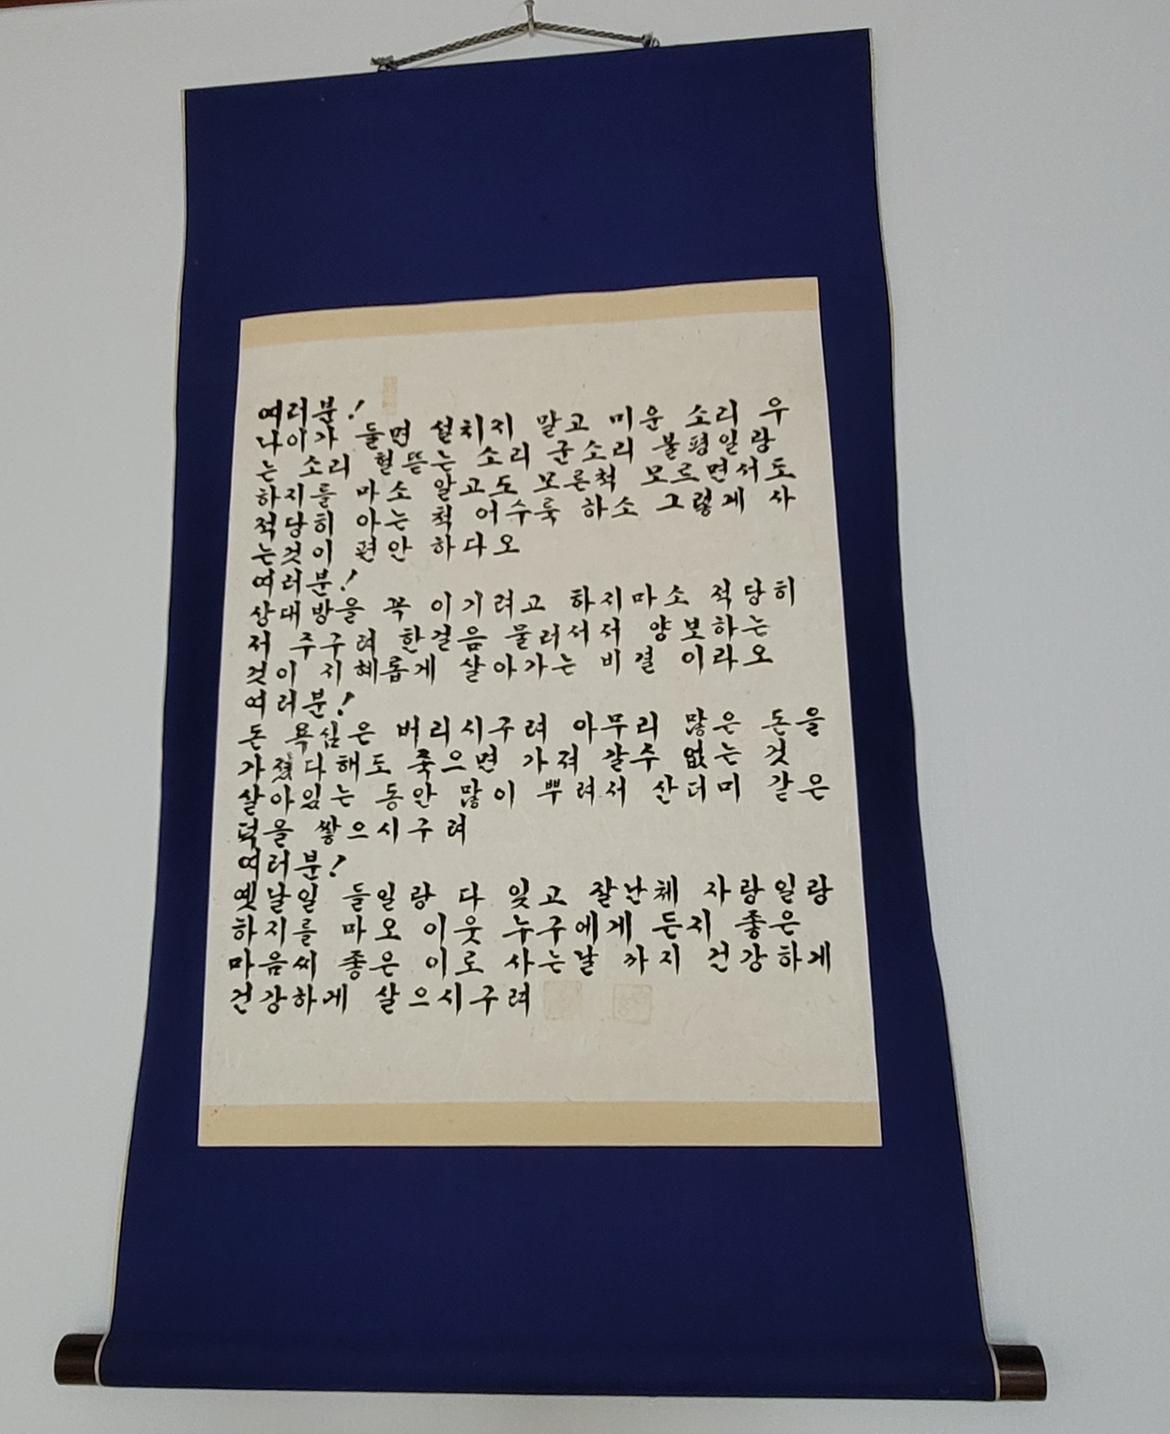 여러분!
나이가 들면 설치지 말고 미운 소리 우
는 소리 헐뜯는 소리 군소리 불평일랑
하지를 마소 알고도 모른척 모르면서도
적당히 아는 척 어수룩 하소 그렇게 사
는것이 편안 하다오
여러분!
상대방을 꼭 이기려고 하지마소 적당히
저 주구려 한걸음 물러서서 양보하는
것이 지혜롭게 살아가는 비결 이라오
여러분!
돈 욕심은 버리시구려 아무리 많은 돈을
가졌다해도 죽으면 가져 갈수 없는 것
살아있는 동안 많이 뿌려서 산더미 같은
덕을 쌓으시구려
여러분!
옛날일 들일랑 다 잊고 잘난체 자랑일랑
하지를 마오 이웃 누구에게 든지 좋은
마음씨 좋은 이로 사는날 까지 건강하게
건강하게 살으시구려